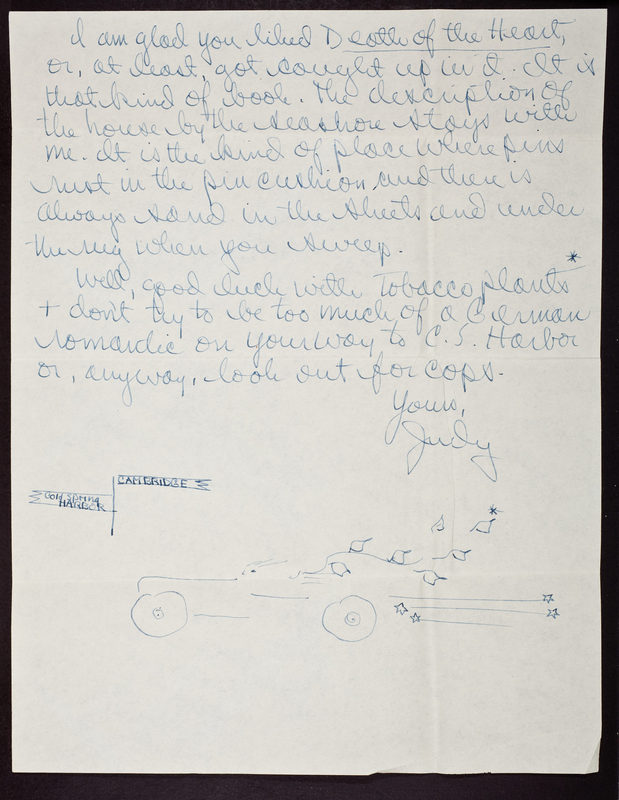 I am glad you liked Death of the Heart,
or, at least, got caught up in it. It is
that kind of book. The description of
the house by the seashore stays with
me. It is the kind of place where pins
rust in the pin cushion and there is
always sand in the sheets and under
the rug when you sweep.
Well, good luck with Tobacco plants*
+ don't try to be too much of a German
romantic on your way to C.S. Harbor
or, anyway, look out for cops.
Yours,
Judy
CAMBRIDGE
Cold Spring
HARBOR
*